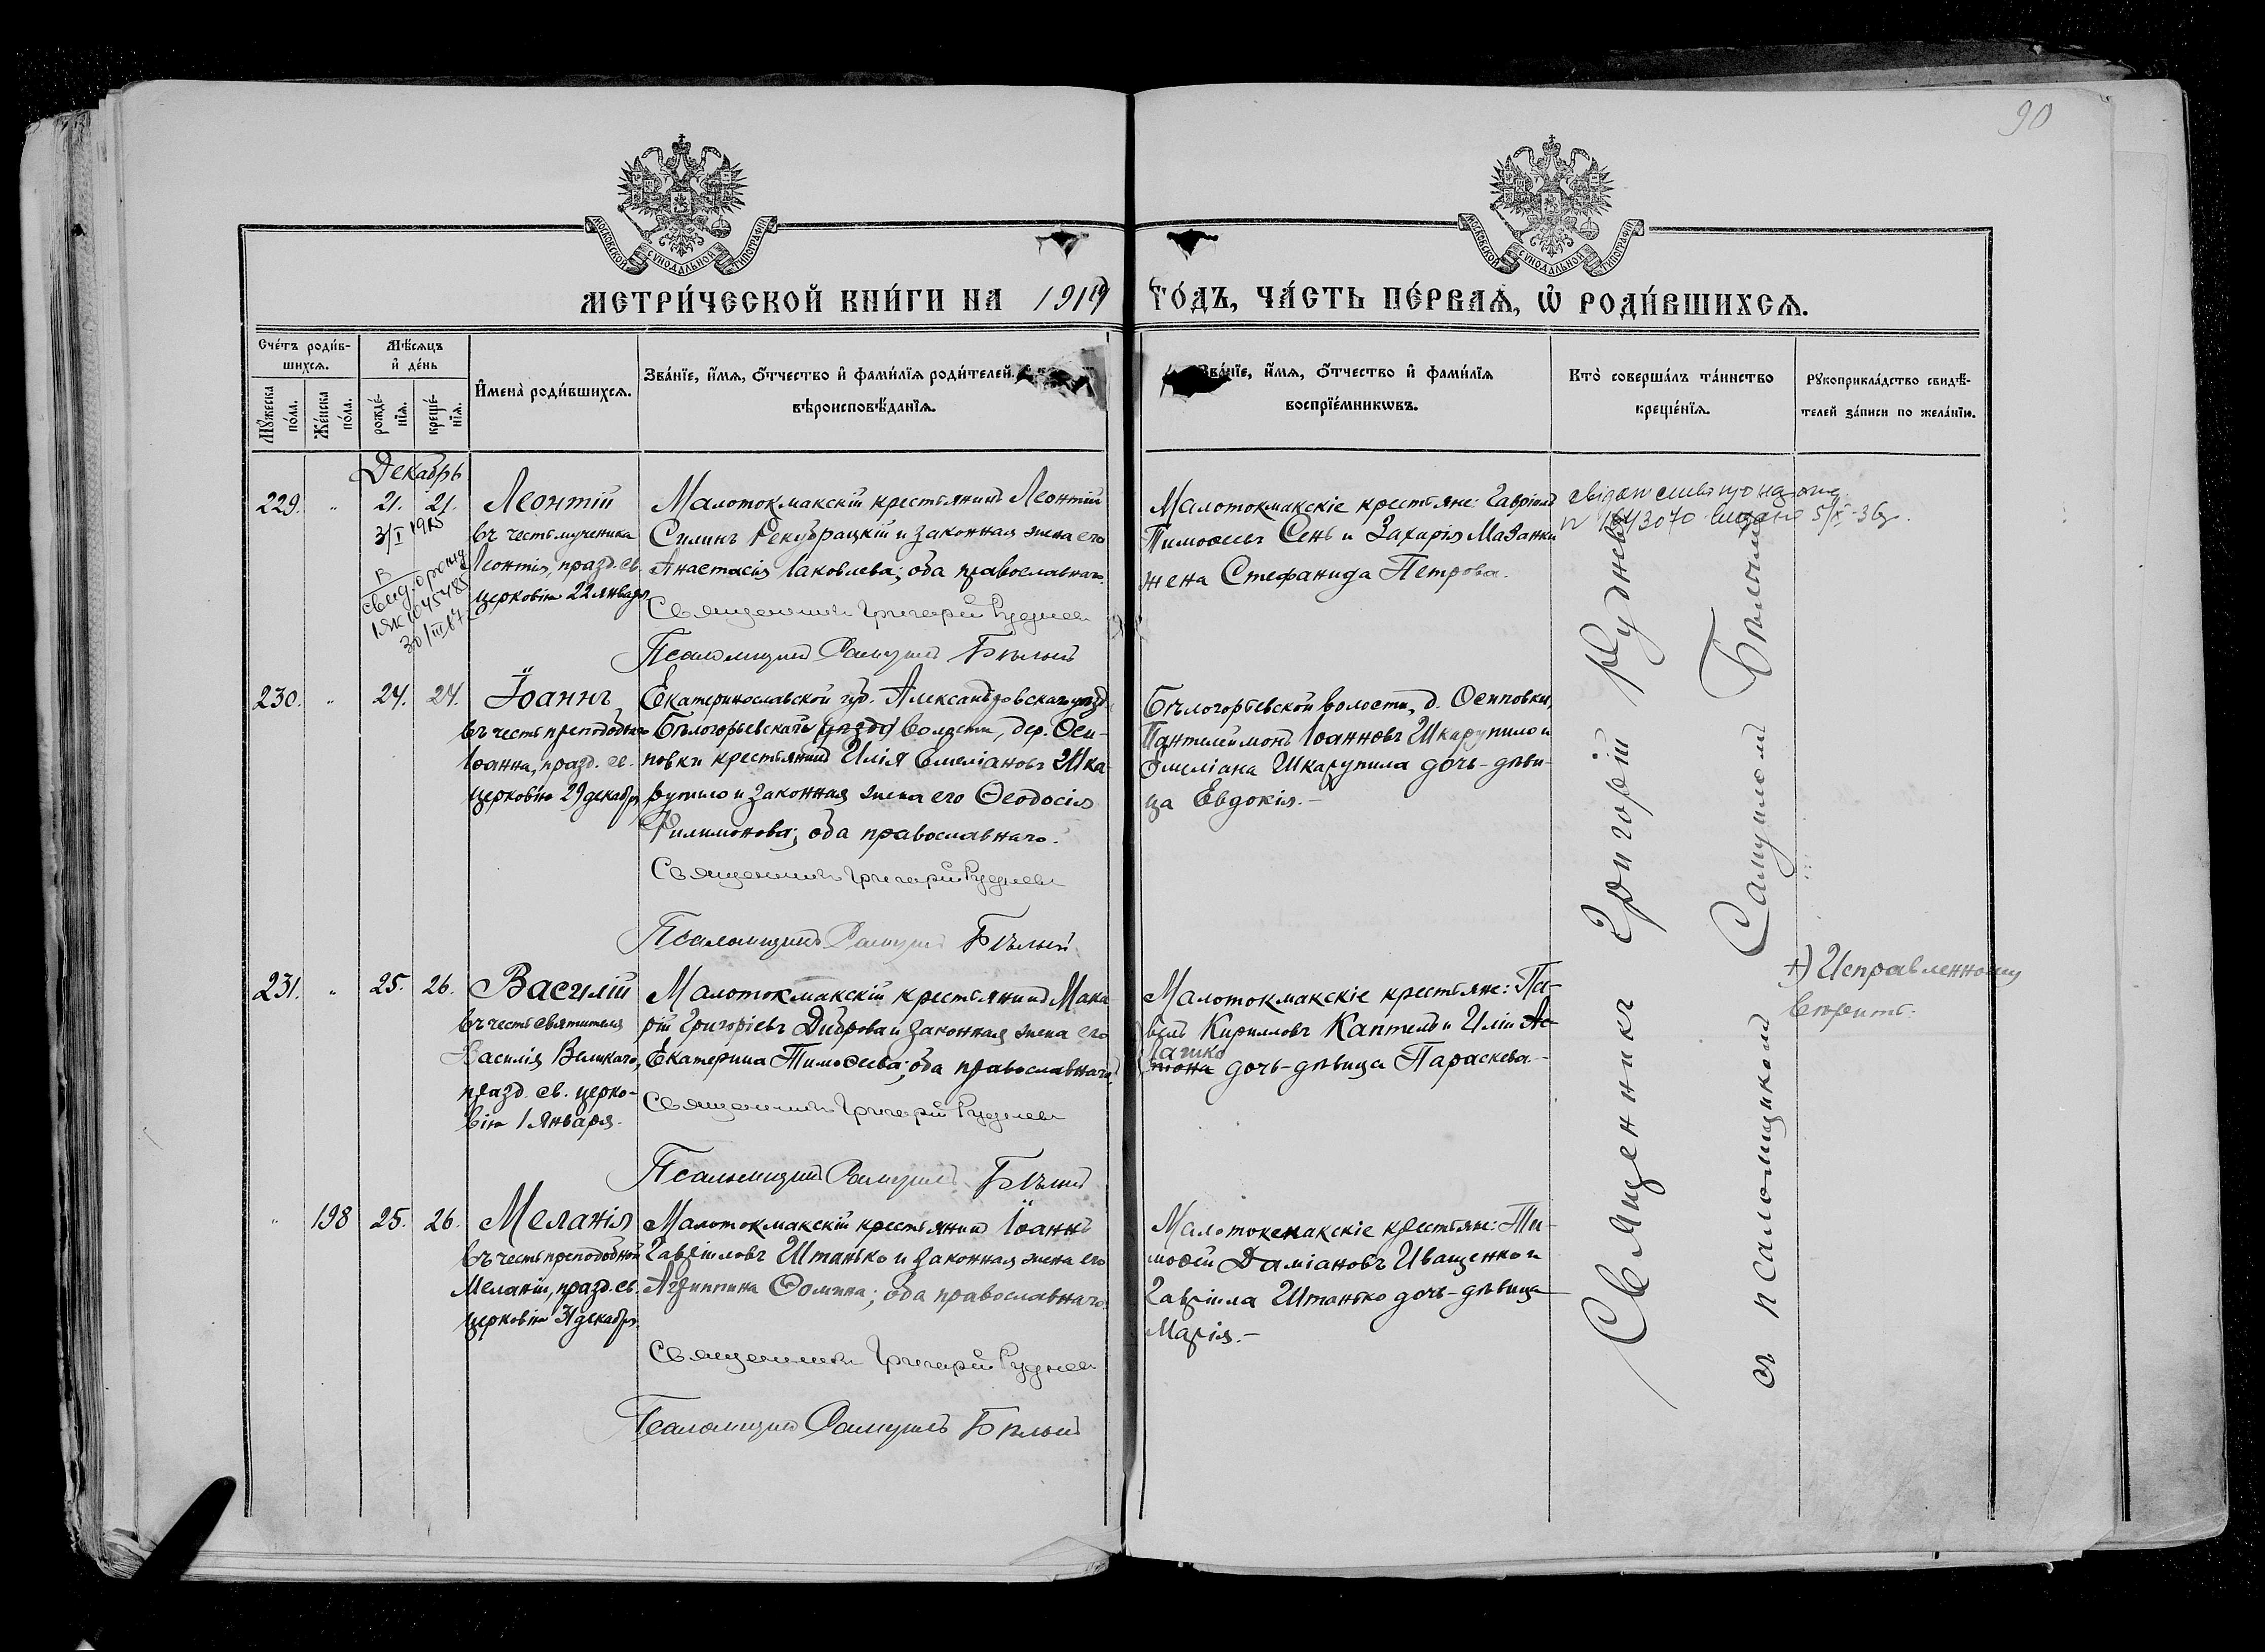 90
МОСКОВСКОЙ СѴНОДАЛЬНОЙ ТИПОГРАФІИ
МОСКОВСКОЙ СѴНОДАЛЬНОЙ ТИПОГРАФІИ
МЕТРИ́ЧЕСКОЙ КНИ́ГИ НА 1914 ГО́ДЪ, ЧА́СТЬ ПЕ́РВАѦ, Ѡ҆ РОДИ́ВШИХСѦ.
Сче́тъ роди́в-
шихсѧ.
Мꙋ́жеска
по́ла.
Же́нска
по́ла.
Мѣ́сѧцъ
и҆ де́нь
рожде́-
нїѧ.
креще́-
нїѧ.
И҆мена̀ роди́вшихсѧ.
Зва́нїе, и҆́мѧ, ѻ҆́тчество и҆ фами́лїѧ роди́телей.
вѣроисповѣ́данїѧ.
Зва́нїе, и҆́мѧ, ѻ҆́тчество и҆ фами́лїѧ
воспрїе́мникѡвъ.
Кто̀ соверша́лъ та́инство
креще́нїѧ.
Рꙋкоприкла́дство свидѣ́-
телей за́писи по жела́нїю.
Декабрь
229. " 21. 21.
3/I 1915
Леонтій
въ честь мученика
Леонтія, празд. св.
церковію 22 января
Малотокмакскій крестьянинъ Леонтій
Силинъ Рекубрацкій и законная жена его
Анастасія Іаковлева; оба православнаго.
Священникъ Григорій Рудневъ
Псаломщикъ Самуилъ Бѣлый
Малотокмакскіе крестьяне: Гавріилъ
Тимоѳеевъ Сень и Захарія Мазанки
жена Стефанида Петрова.
230. " 24. 24.
Іоаннъ
въ честь преподобнаго
Іоанна, празд. св.
церковію 29 декабря
Екатеринославской губ. Александровскаго уѣзд.
Бѣлогорьевской (уѣзда) волости, дер. Оси-
повки крестьянинъ Илія Емеліановъ Шка-
рупило и законная жена его Ѳеодосія
Филимонова; оба православнаго.
Священникъ Григорій Рудневъ
Псаломщикъ Самуилъ Бѣлый
Бѣлогорьевской волости, д. Осиповки,
Пантелеимонъ Іоанновъ Шкарупило и
Емеліана Шкарупила дочь-дѣви-
ца Евдокія.-
231. " 25. 26.
Василій
въ честь святителя
Василія Великаго,
празд. св. церко-
вію 1 января.
Малотокмакскій крестьянинъ Мака-
рій Григоріевъ Диброва и законная жена его
Екатерина Тимоѳеева; оба православнаго.
Священникъ Григорій Рудневъ
Псаломщикъ Самуилъ Бѣлый
Малотокмакскіе крестьяне: Па-
велъ Кирилловъ Каптелъ и Иліи
Лашко
дочь-дѣвица Параскева.-
+) Исправленному
вѣрить.
" 198 25. 26.
Меланія
въ честь преподобной
Меланіи, празд. св.
церковію 31 декабря.
Малотокмакскій крестьянинъ Іоаннъ
Гавріиловъ Штанько и законная жена его
Агриппина Ѳомина; оба православнаго.
Священникъ Григорій Рудневъ
Псаломщикъ Самуилъ Бѣлый
Малотокмакскіе крестьяне: Ти-
моѳей Даміановъ Иващенко и
Гавріила Штанько дочь-дѣвица
Марія.-
Священникъ Григорій Рудневъ
съ псаломщикомъ Самуиломъ Бѣлымъ